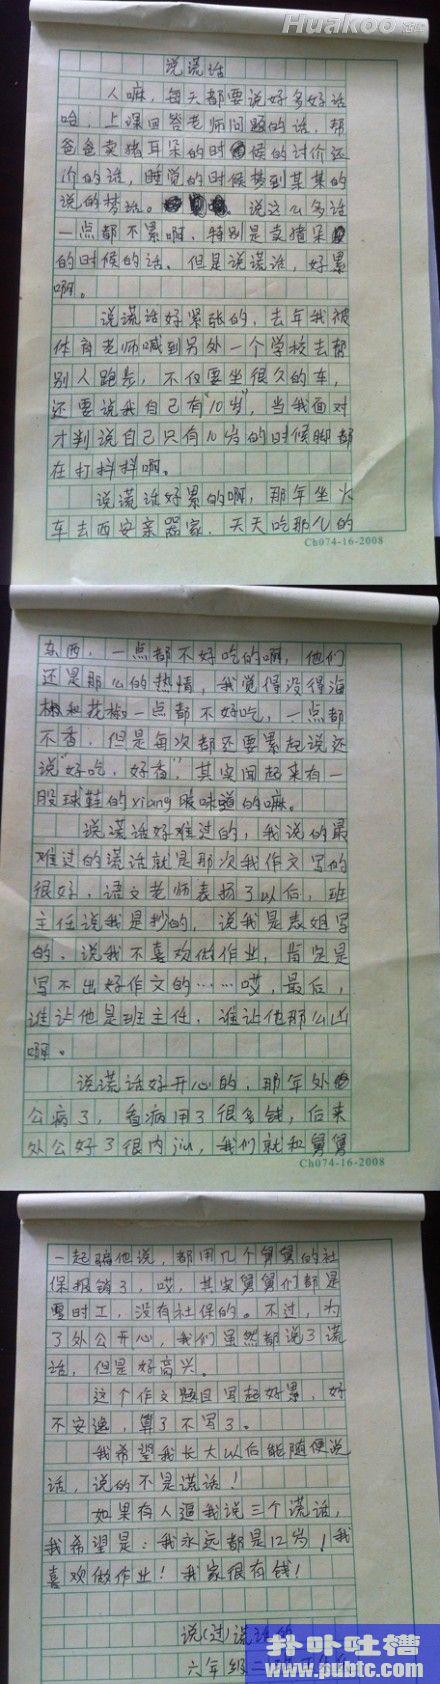 Huakoo
说谎话
人嘛，每天都要说好多好话
哈，上课回答老师问题的话，帮
爸爸卖猪耳朵的时候的讨价还
价的话，睡觉的时候梦到某某的
说的梦话。说这么多话
一点都不累啊，特别是卖猪朵
的时候的话。但是说谎话，好累
啊。
说谎话好紧张的，去年我被
体育老师喊到另外一个学校去帮
别人跑步，不仅要坐很久的车，
还要说我自己有"10岁"，当我面对
才判说自己只有10岁的时候脚都
在打抖抖啊。
说谎话好累的啊，那年坐火
车去西安亲器家，天天吃那儿的
Ch074-16-2008
东西，一点都不好吃的啊，他们
还是那么的热情，我觉得没得海
椒和花椒一点都不好吃，一点都
不香，但是每次都还要累起说还
说"好吃，好香"，其实闻起来有一
股球鞋的xiang胶味道的嘛。
说谎话好难过的，我说的最
难过的谎话就是那次我作文写的
很好，语文老师表扬了以后，班
主任说我是抄的，说我是表姐写
的，说我不喜欢做作业，肯定是
写不出好作文的……哎，最后，
谁让他是班主任，谁让他那么凶
啊。
说谎话好开心的，那年外
公病了，看病用了很多钱，后来
外公好了很内jiu，我们就和舅舅
Ch074-16-2008
一起骗他说，都用几个舅舅的社
保报销了，哎，其实舅舅们都是
零时工，没有社保的。不过，为
了外公开心，我们虽然都说了谎
话，但是好高兴。
这个作文题目写起好累，好
不安逸，算了不写了。
我希望我长大以后能随便说
话，说的不是谎话！
如果有人逼我说三个谎话，
我希望是：我永远都是12岁！我
喜欢做作业！我家很有钱！
说（过）谎话的
六年级二
扑卟吐槽
www.pubtc.com